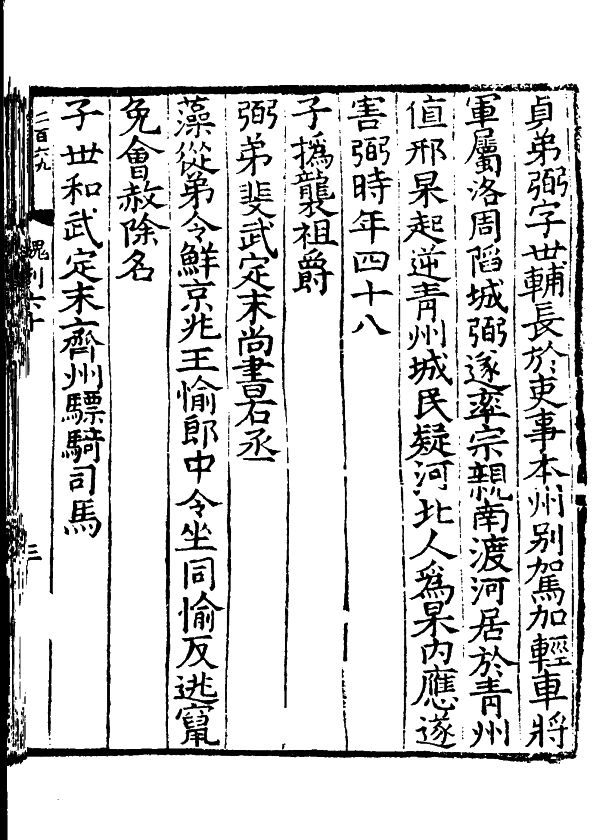 貞弟弼字世輔長於吏事本州别駕加輕車將
軍屬洛周䧟城弼遂率宗親南渡河居於青州
值邢杲起逆青州城民疑河北人爲杲内應遂
害弼時年四十八
子撝襲祖爵
弼弟斐武定末尚書右丞
藻從弟令鮮京兆王愉郎中令坐同愉反逃竄
免會赦除名
子世和武定末齊州驃騎司馬
二百六九 魏列六十 三